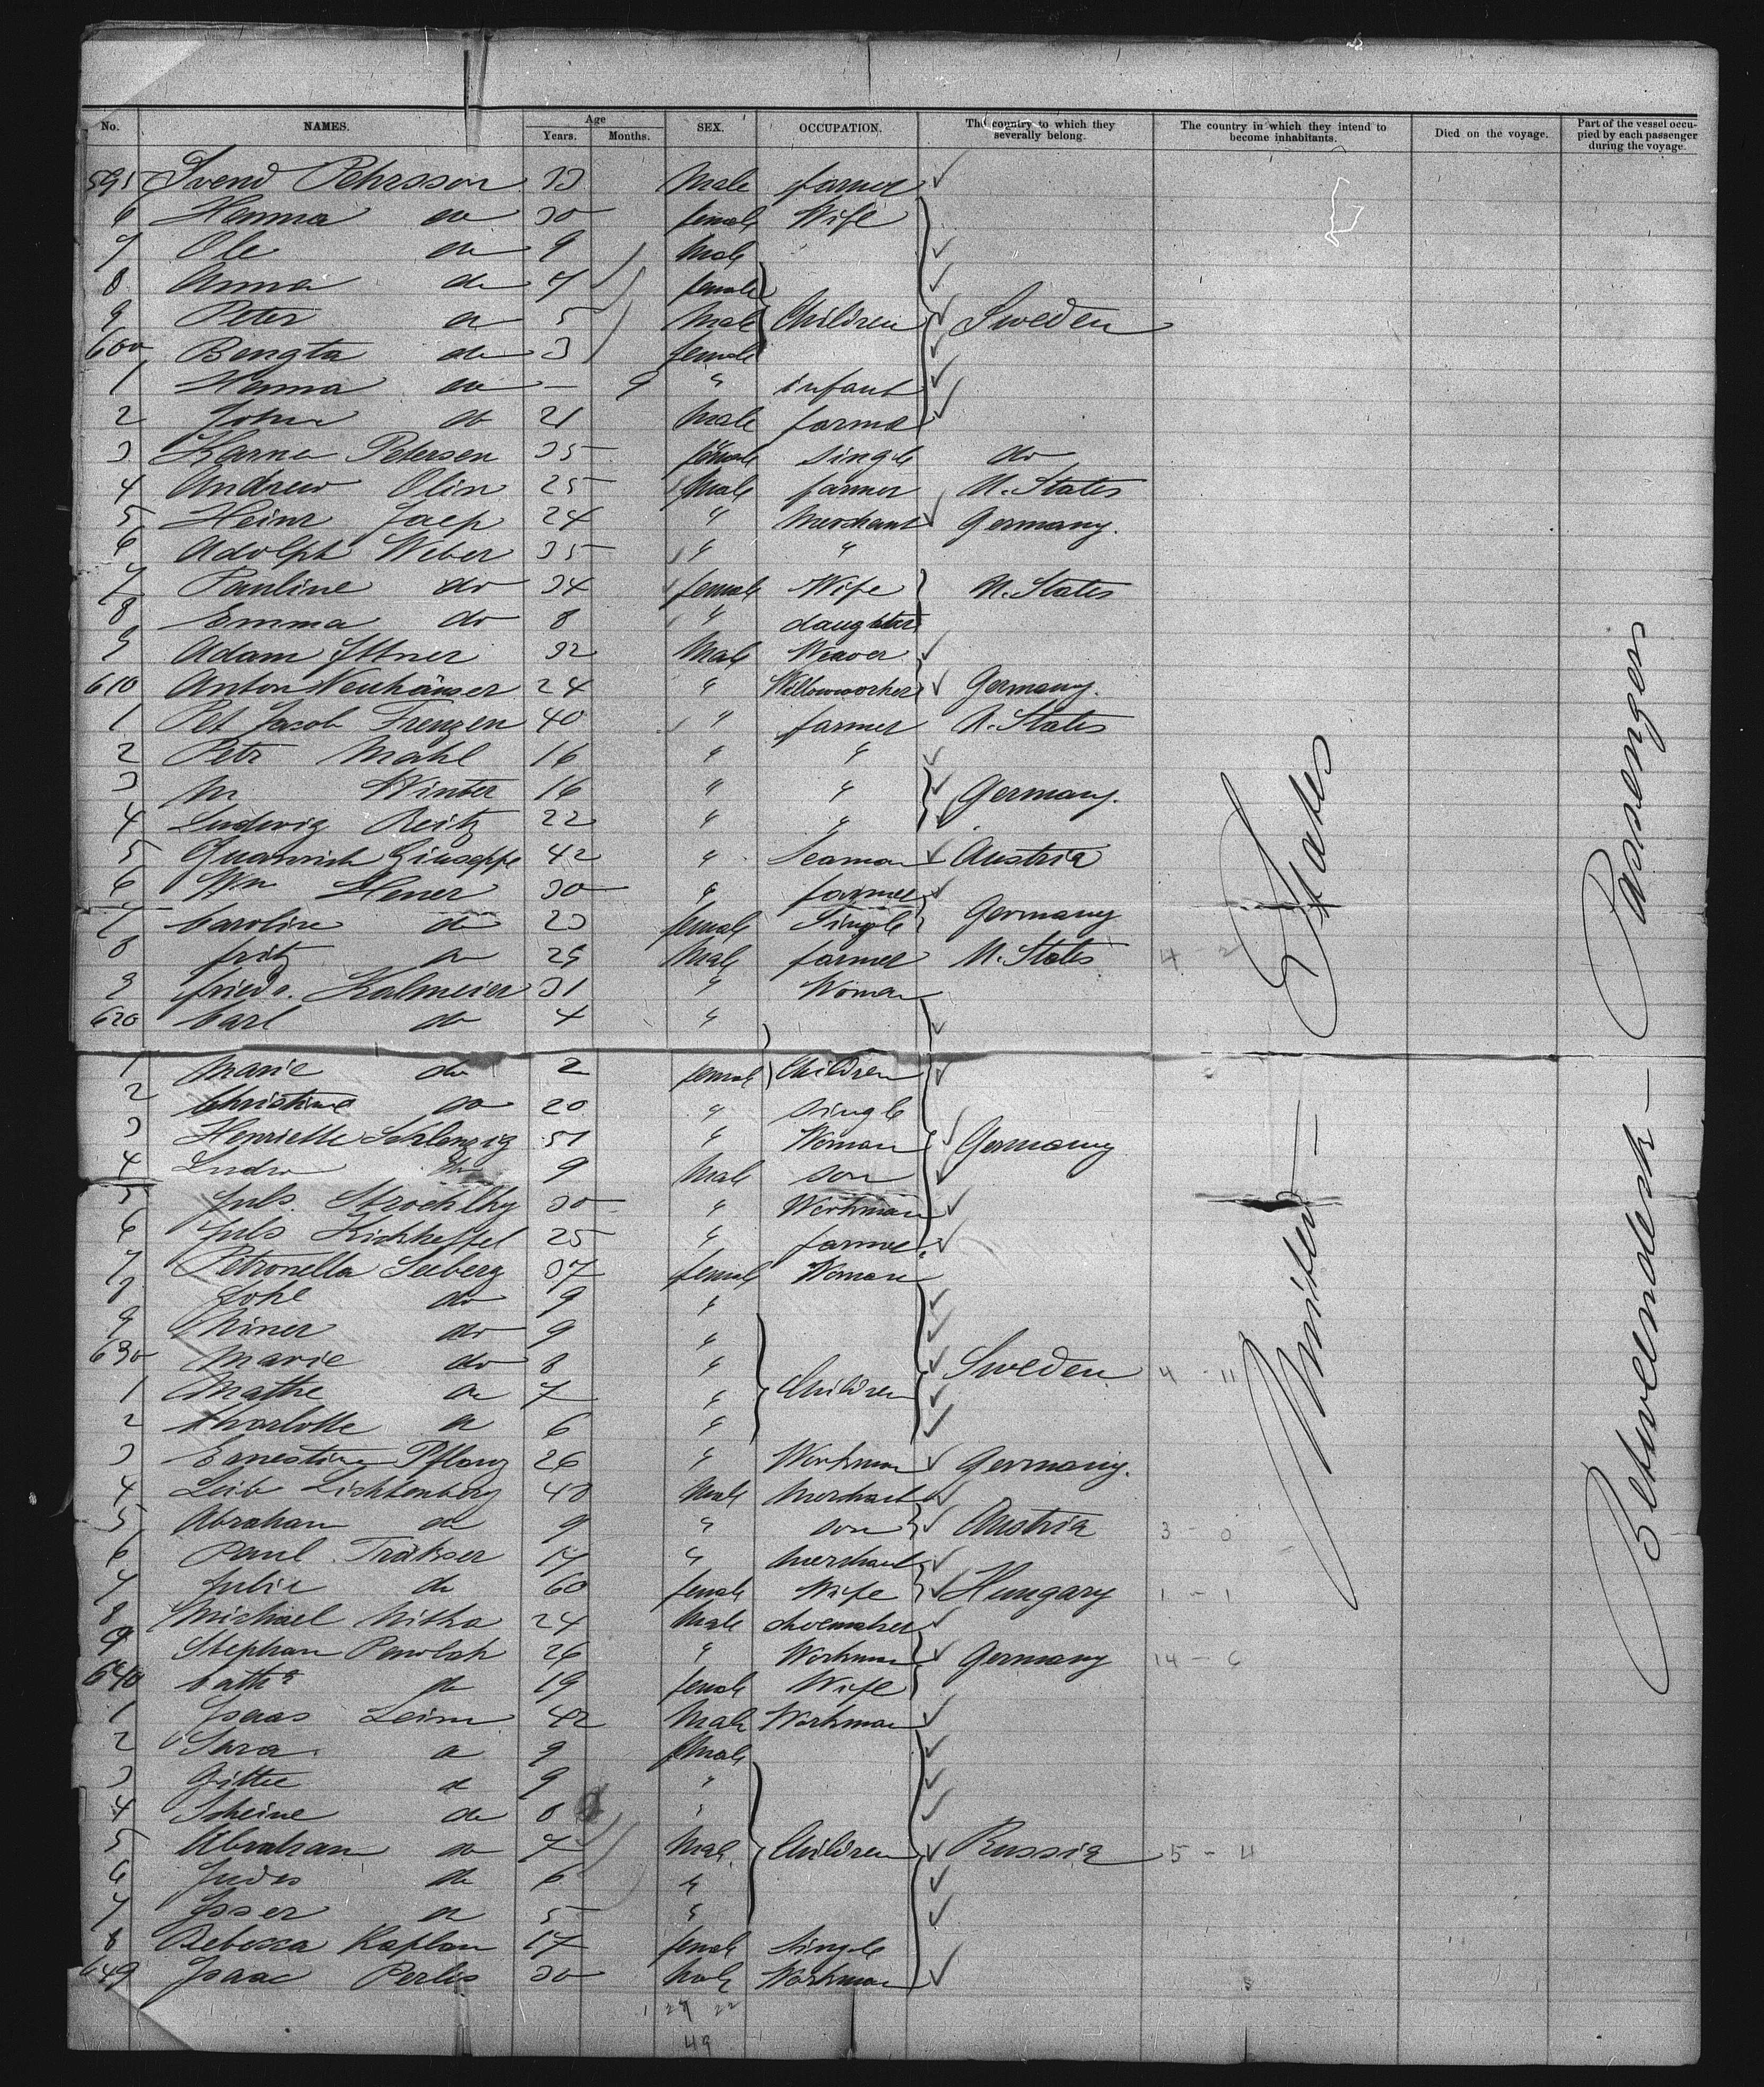 No. NAMES. Age Years. Months. SEX. OCCUPATION. The country to which they severally belong. The country in which they intend to become inhabitants. Died on the voyage. Part of the vessel occupied by each passenger during the voyage.
595 Svend Pehrsson 33 Male farmer
6 Hanna do 30 female Wife
7 Ole do 9 Male
8 Anna do 7 female
9 Peter do 5 Male Children Sweden
600 Bengta do 3 female
1 Hanna do — 9 " infant
2 John do 21 Male farmer
3 Karna Petersen 35 female single do
4 Andrew Olin 25 Male farmer U. States
5 Heinr Jaep 24 " Merchant Germany.
6 Adolph Weber 35 " "
7 Pauline do 34 female Wife U. States
8 Emma do 8 " daughter
9 Adam Ittner 32 Male Weaver
610 Anton Neuhäuser 24 " Willowworker Germany.
1 Pet Jacob Frenzen 40 " farmer U. States
2 Petr Mahl 16 " "
3 M Winter 16 " " Germany.
4 Ludwig Reitz 22 " "
5 Giuseppe 42 " Seaman Austria
6 Wm 30 " farmer
7 Caroline do 23 female Single Germany
8 fritz do 25 Male farmer U. States 4 - 2
9 friedr. Kalmeier 31 " Woman
620 Carl do 4 "
1 Marie do 2 female Children
2 Christine do 20 " single
3 Henriette 51 " Woman Germany
4 Ludw do 9 Male son
5 Juls. 30 " Workman
6 Juls 25 " farmer
7 Petronella Seeberg 37 female Woman
8 do 9 "
9 Miner do 9 "
630 Marie do 8 " Sweden 4 - 11
1 Mathe do 7 " Children
2 Charlotte do 6 "
3 Ernestine Pflanz 26 " Workman Germany.
4 Leib Lichtenberg 40 Male Merchant
5 Abraham do 9 " son Austria 3 - 0
6 Paul 17 " Merchant
7 Julie do 60 female Wife Hungary 1 - 1
8 Michael Mitka 24 Male shoemaker
9 Stephan Pawlak 26 " Workman Germany 14 - 6
640 Catha do 19 female Wife
1 Isaas Leim 42 Male Workman
2 Sara do 9 female
3 Gittee do 9 "
4 Scheine do 8 "
5 Abraham do 7 Male Children Russia 5 - 4
6 Judes do 6 "
7 Isser do 5 "
8 Rebecca Kaplan 17 female single
649 Isaac Perlis 30 Male Workman
1 27 22
49
United States
Betweendeck Passengers